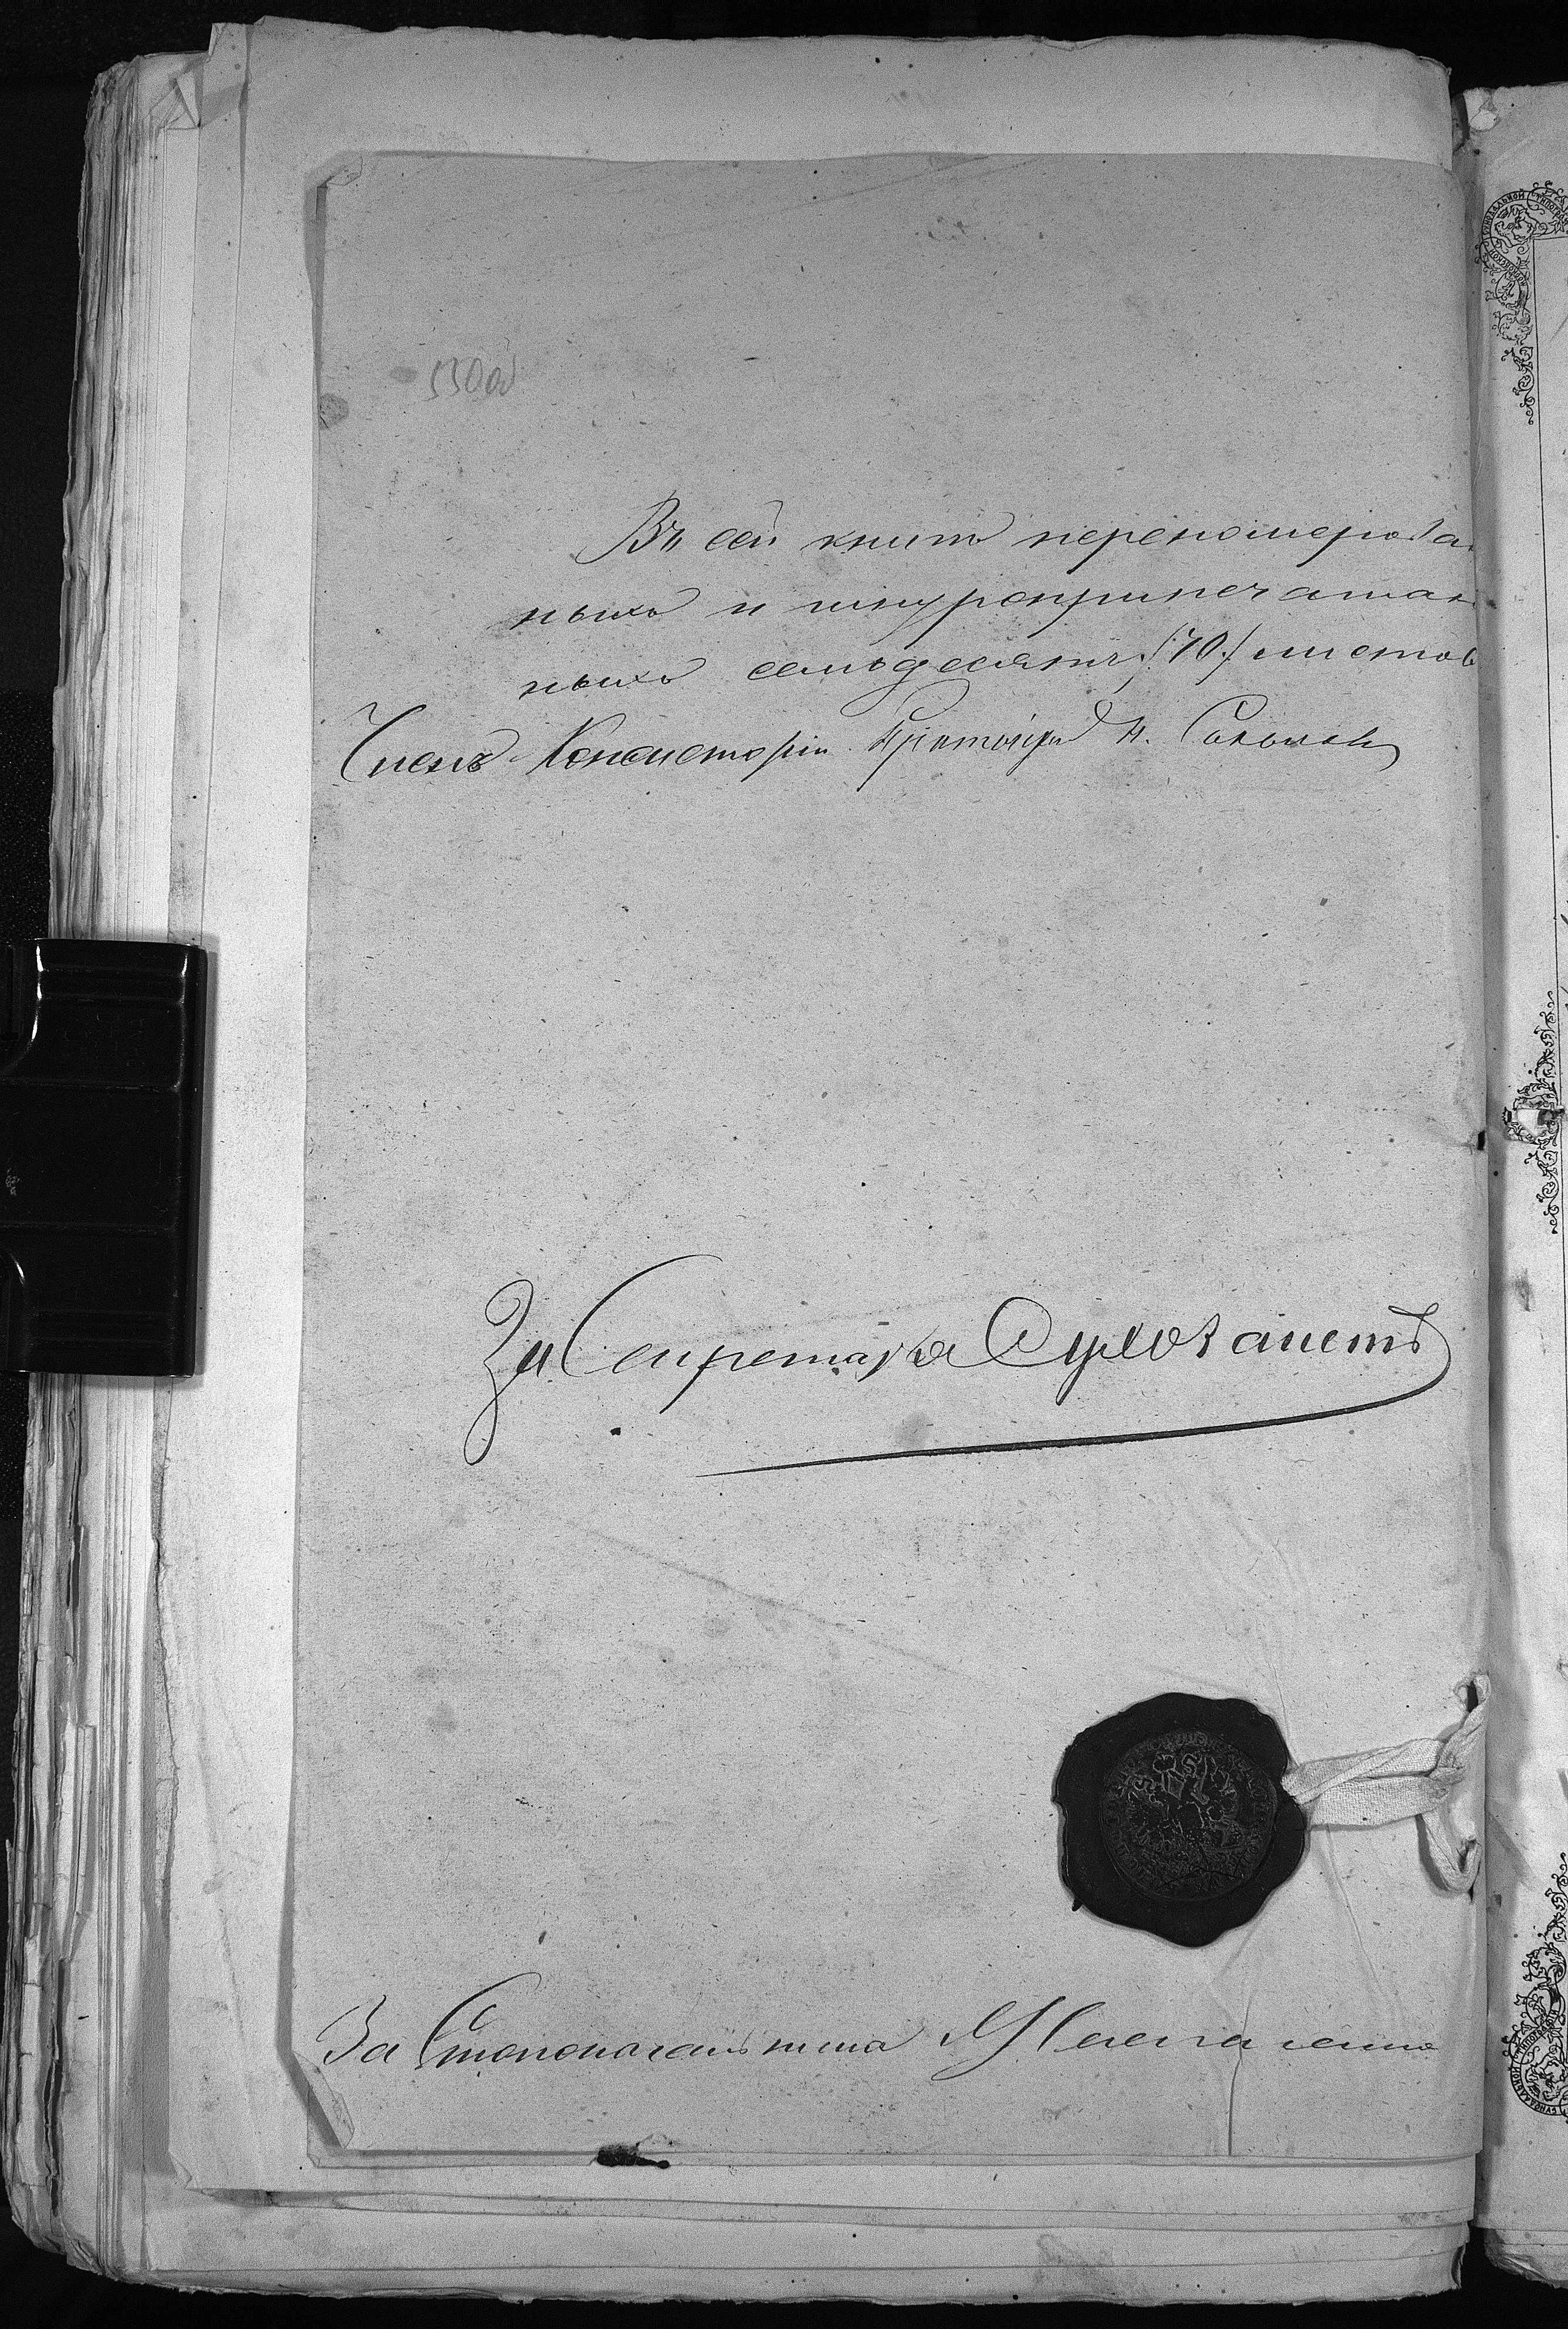 530об
Въ сей книгѣ переномерован
ныхъ и шнуроприпечатан
ныхъ семьдесятъ /70./ листов
Членъ Консисторіи Протоіерей Н. Соколовъ
За Секретаря
За Столоначальника